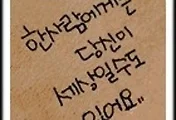 한사람에게는
당신이
세상일수도
있어요,,